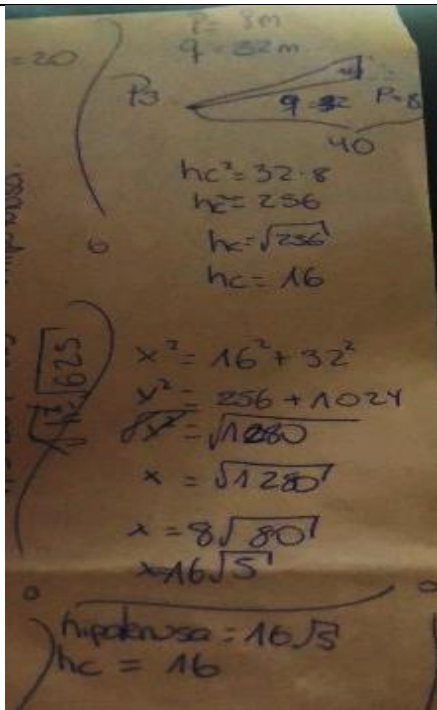 P = 8m
q = 32m
= 20
P3
q = 32 P=8
40
hc² = 32·8
hc² = 256
hc = √256
hc = 16
6
√625
x² = 16² + 32²
x² = 256 + 1024
√x² = √1280
x = √1280
x = 8√80
x = 16√5
hipotenusa = 16√5
hc = 16